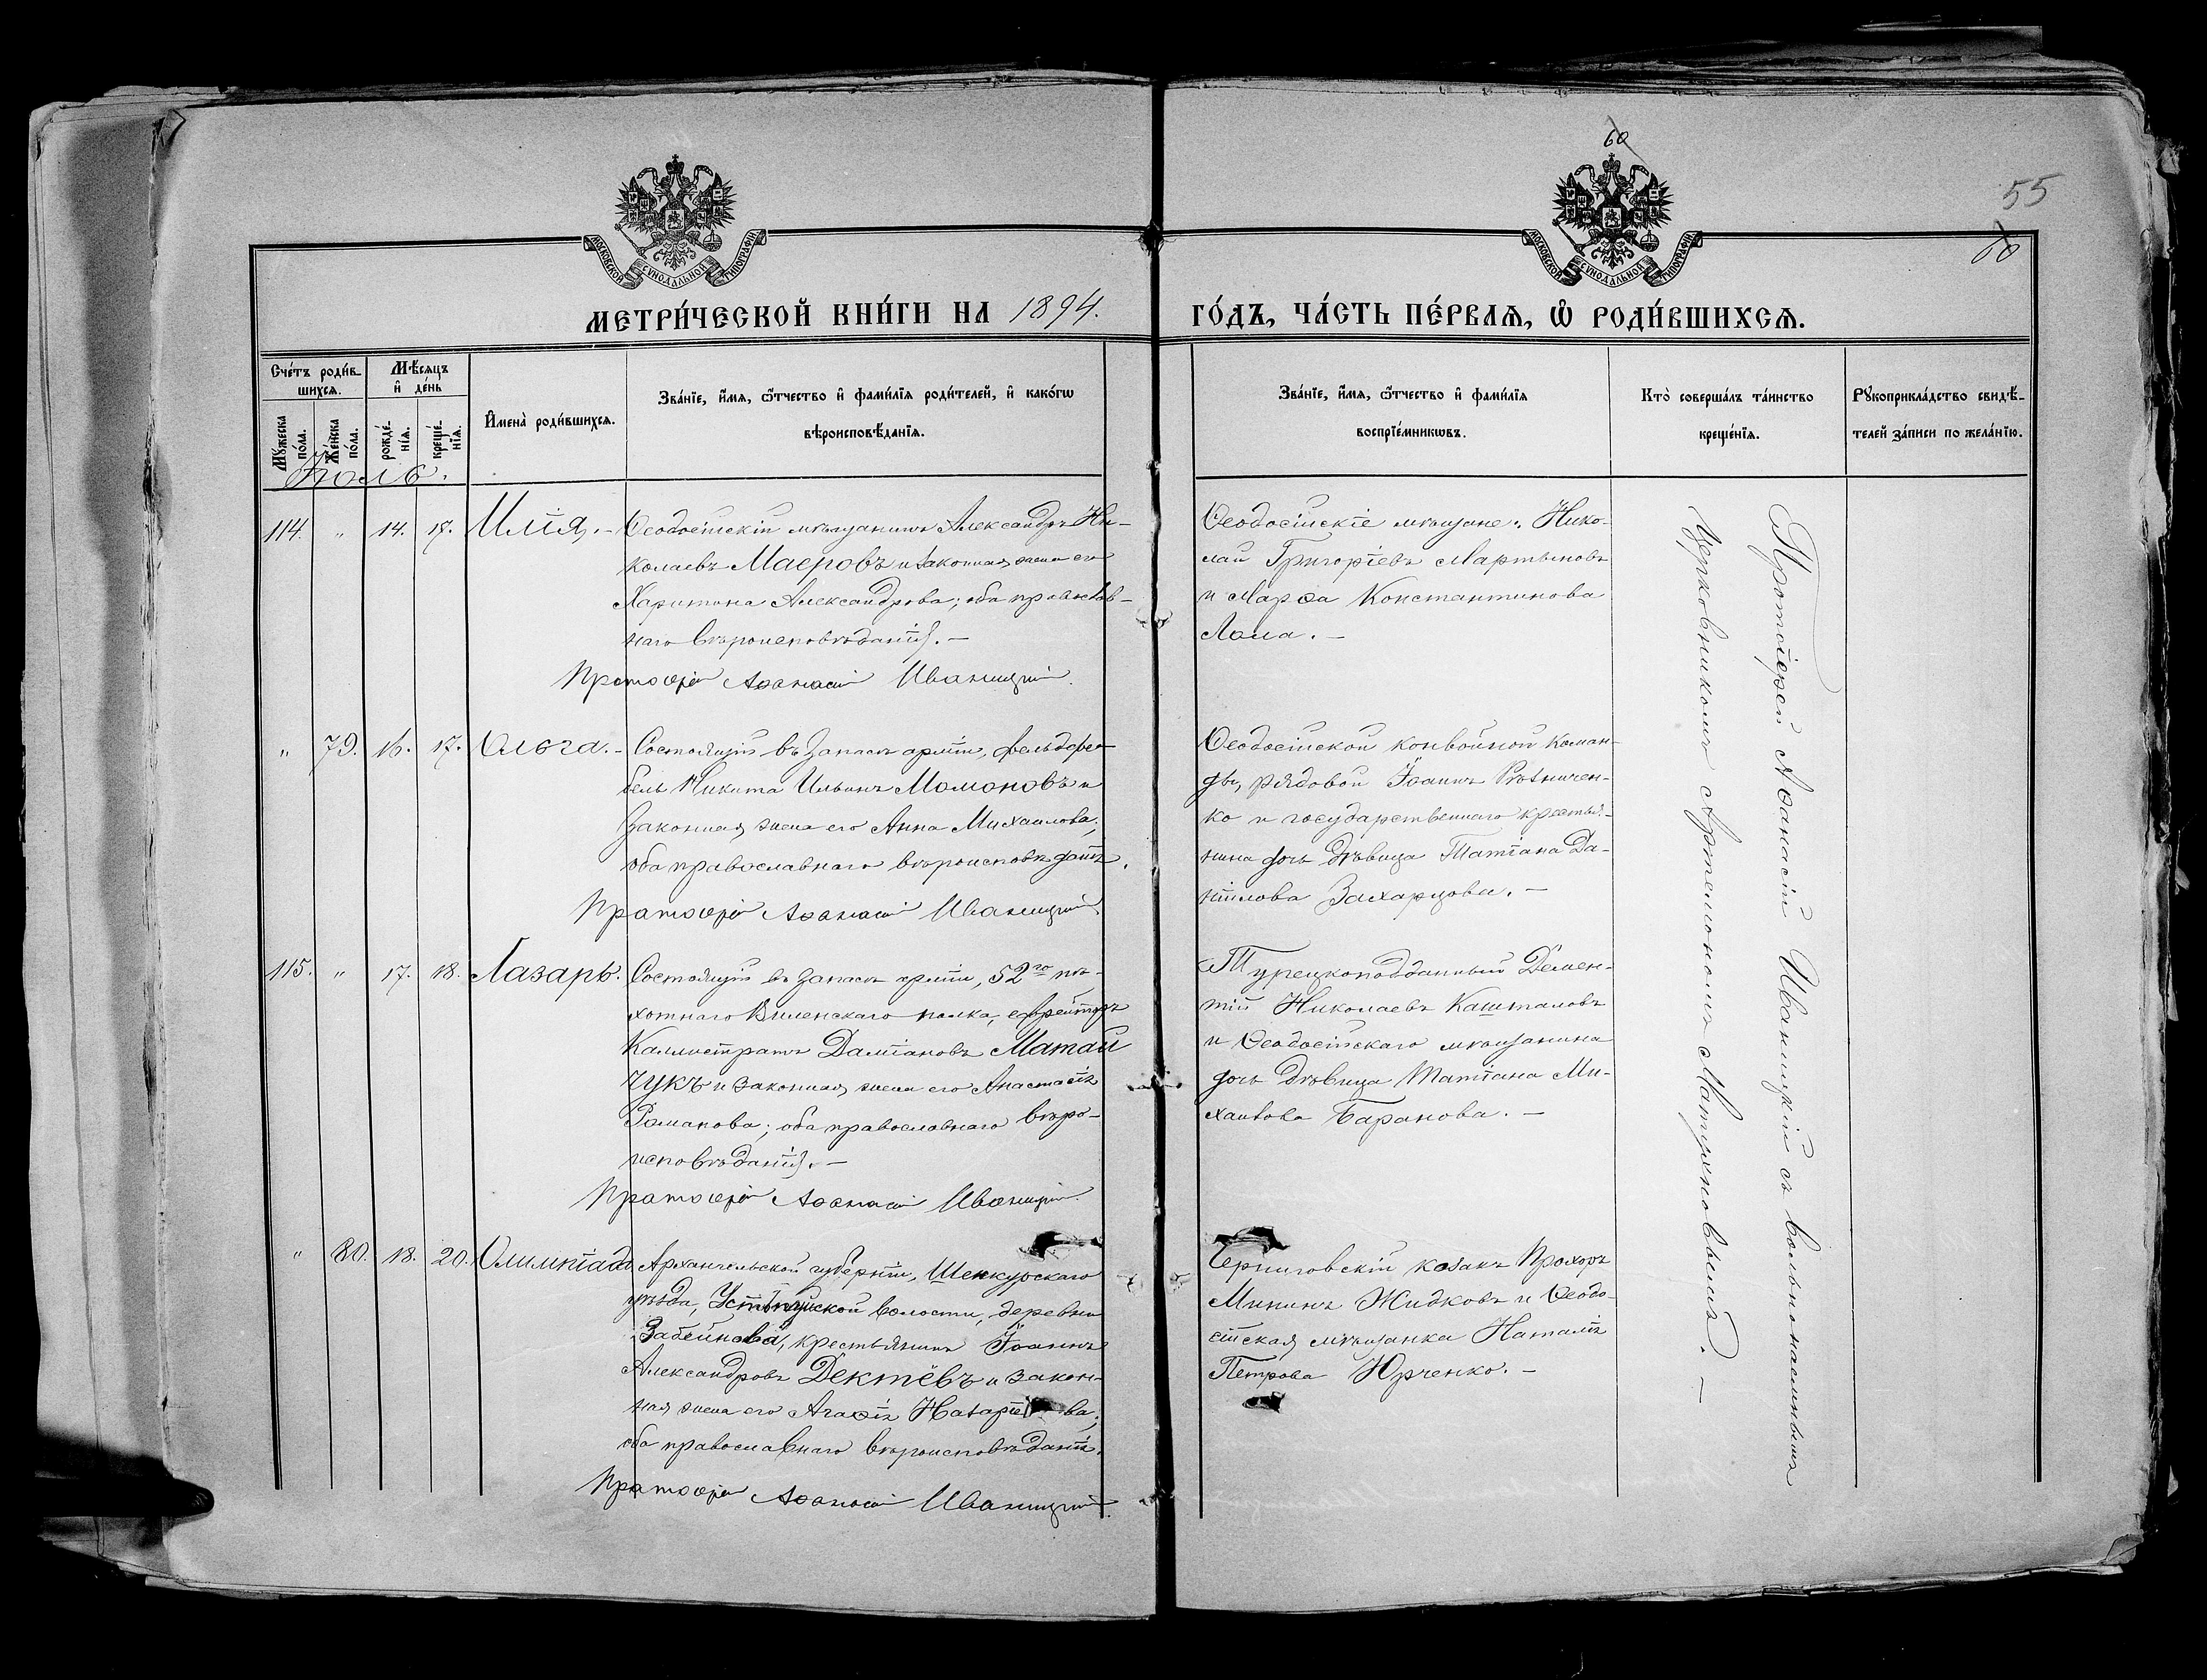 60
55
60
МОСКОВСКОЙ СѴНОДАЛЬНОЙ ТИПОГРАФІИ
МОСКОВСКОЙ СѴНОДАЛЬНОЙ ТИПОГРАФІИ
МЕТРИ́ЧЕСКОЙ КНИ́ГИ НА 1894. ГО́ДЪ, ЧА́СТЬ ПЕ́РВАѦ, Ѡ҆ РОДИ́ВШИХСѦ.
Сче́тъ роди́в-
шихсѧ.
Мѣ́сѧцъ
и҆ де́нь
Мꙋ́жеска
по́ла.
Же́нска
по́ла.
рожде́-
нїѧ.
креще́-
нїѧ.
И҆мена̀ роди́вшихсѧ.
Зва́нїе, и҆́мѧ, ѻ҆́тчество и҆ фами́лїѧ роди́телей, и҆ како́гѡ
вѣроисповѣ́данїѧ.
Зва́нїе, и҆́мѧ, ѻ҆́тчество и҆ фами́лїѧ
воспрїе́мникѡвъ.
Кто̀ соверша́лъ та́инство
креще́нїѧ.
Рꙋкоприкла́дство свидѣ́-
телей за́писи по жела́нїю.
Іюль.
114. " 14. 17. Илія. - Ѳеодосійскій мѣщанинъ Александръ Ни-
колаевъ Маеровъ и законная жена его
Харитина Александрова; оба православ-
наго вѣроисповѣданія. -
Протоіерей Аѳанасій Иваницкій.
Ѳеодосійскіе мѣщане: Нико-
лай Григоріевъ Мартыновъ
и Марѳа Константинова
Лома. -
" 79. 16. 17. Ольга. - Состоящій въ запасѣ арміи, фельдфе-
бель Никита Ильинъ Момоновъ и
законная жена его Анна Михаилова;
оба православнаго вѣроисповѣданія.
Протоіерей Аѳанасій Иваницкій.
Ѳеодосійской конвойной коман-
ды, рядовой Іоаннъ Рѣзничен-
ко и государственнаго крестья-
нина дочь дѣвица Татіана Да-
ніилова Захарцова. -
115. " 17. 18. Лазарь. Состоящій въ запасѣ арміи, 52го пѣ-
хотнаго Виленскаго полка, ефрейторъ
Каллистратъ Даміановъ Матай
чукъ и законная жена его Анастасія
Романова; оба православнаго вѣро-
исповѣданія. -
Протоіерей Аѳанасій Иваницкій.
Турецкоподданный Демен-
тій Николаевъ Кашталовъ
и Ѳеодосійскаго мѣщанина
дочь дѣвица Татіана Ми-
хаилова Баранова. -
" 80. 18. 20. Олимпіада Архангельской губерніи, Шенкурскаго
уѣзда, волости, деревни
крестьянинъ Іоаннъ
Александровъ Дектёвъ и закон-
ная жена его Агаѳія
оба православнаго вѣроисповѣданія.
Протоіерей Аѳанасій Иваницкій.
Черниговскій козакъ Прохоръ
Мининъ Жидковъ и Ѳеодо-
сійская мѣщанка Наталія
Петрова Юрченко. -
Протоіерей Аѳанасій Иваницкій съ вольнонаемнымъ
церковникомъ Артемономъ Мартыновымъ. -